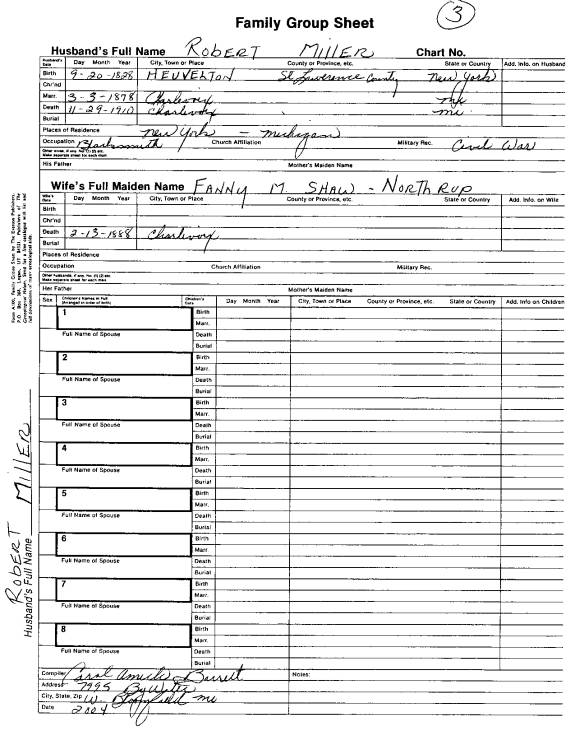 3
Family Group Sheet
Husband's Full Name ROBERT MILLER Chart No.
Husband's Data Day Month Year City, Town or Place County or Province, etc. State or Country Add. Info. on Husband
Birth 9-20-1828 HEUVELTON St Lawrence County New York
Chr'nd
Marr. 3-3-1878 Charlevoix mi
Death 11-29-1910 Charlevoix mi
Burial
Places of Residence New York - Michigan
Occupation Blacksmith Church Affiliation Military Rec. Civil War
Other wives, if any. No. (1) (2) etc.
Make separate sheet for each marr.
His Father Mother's Maiden Name
Wife's Full Maiden Name FANNY M. SHAW - NORTHRUP
Wife's Data Day Month Year City, Town or Place County or Province, etc. State or Country Add. Info. on Wife
Birth
Chr'nd
Death 2-13-1888 Charlevoix
Burial
Places of Residence
Occupation Church Affiliation Military Rec.
Other husbands, if any. No. (1) (2) etc.
Make separate sheet for each marr.
Her Father Mother's Maiden Name
Sex Children's Names in Full (Arranged in order of birth) Children's Data Day Month Year City, Town or Place County or Province, etc. State or Country Add. Info on Children
1 Birth
Marr.
Full Name of Spouse Death
Burial
2 Birth
Marr.
Full Name of Spouse Death
Burial
3 Birth
Marr.
Full Name of Spouse Death
Burial
4 Birth
Marr.
Full Name of Spouse Death
Burial
5 Birth
Marr.
Full Name of Spouse Death
Burial
6 Birth
Marr.
Full Name of Spouse Death
Burial
7 Birth
Marr.
Full Name of Spouse Death
Burial
8 Birth
Marr.
Full Name of Spouse Death
Burial
Compiler Carol Barrett Notes:
Address 7995 Bywater
City, State, Zip W. Bloomfield mi
Date 2004
Husband's Full Name ROBERT MILLER